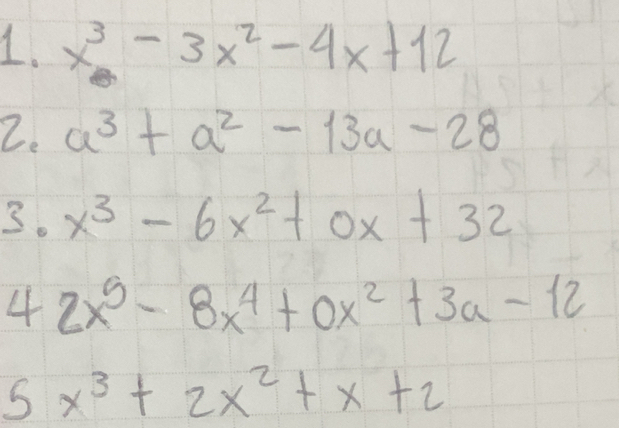 1. x³ - 3x² - 4x + 12
2. a³ + a² - 13a - 28
3. x³ - 6x² + 0x + 32
4 2x⁵ - 8x⁴ + 0x² + 3a - 12
5 x³ + 2x² + x + 2